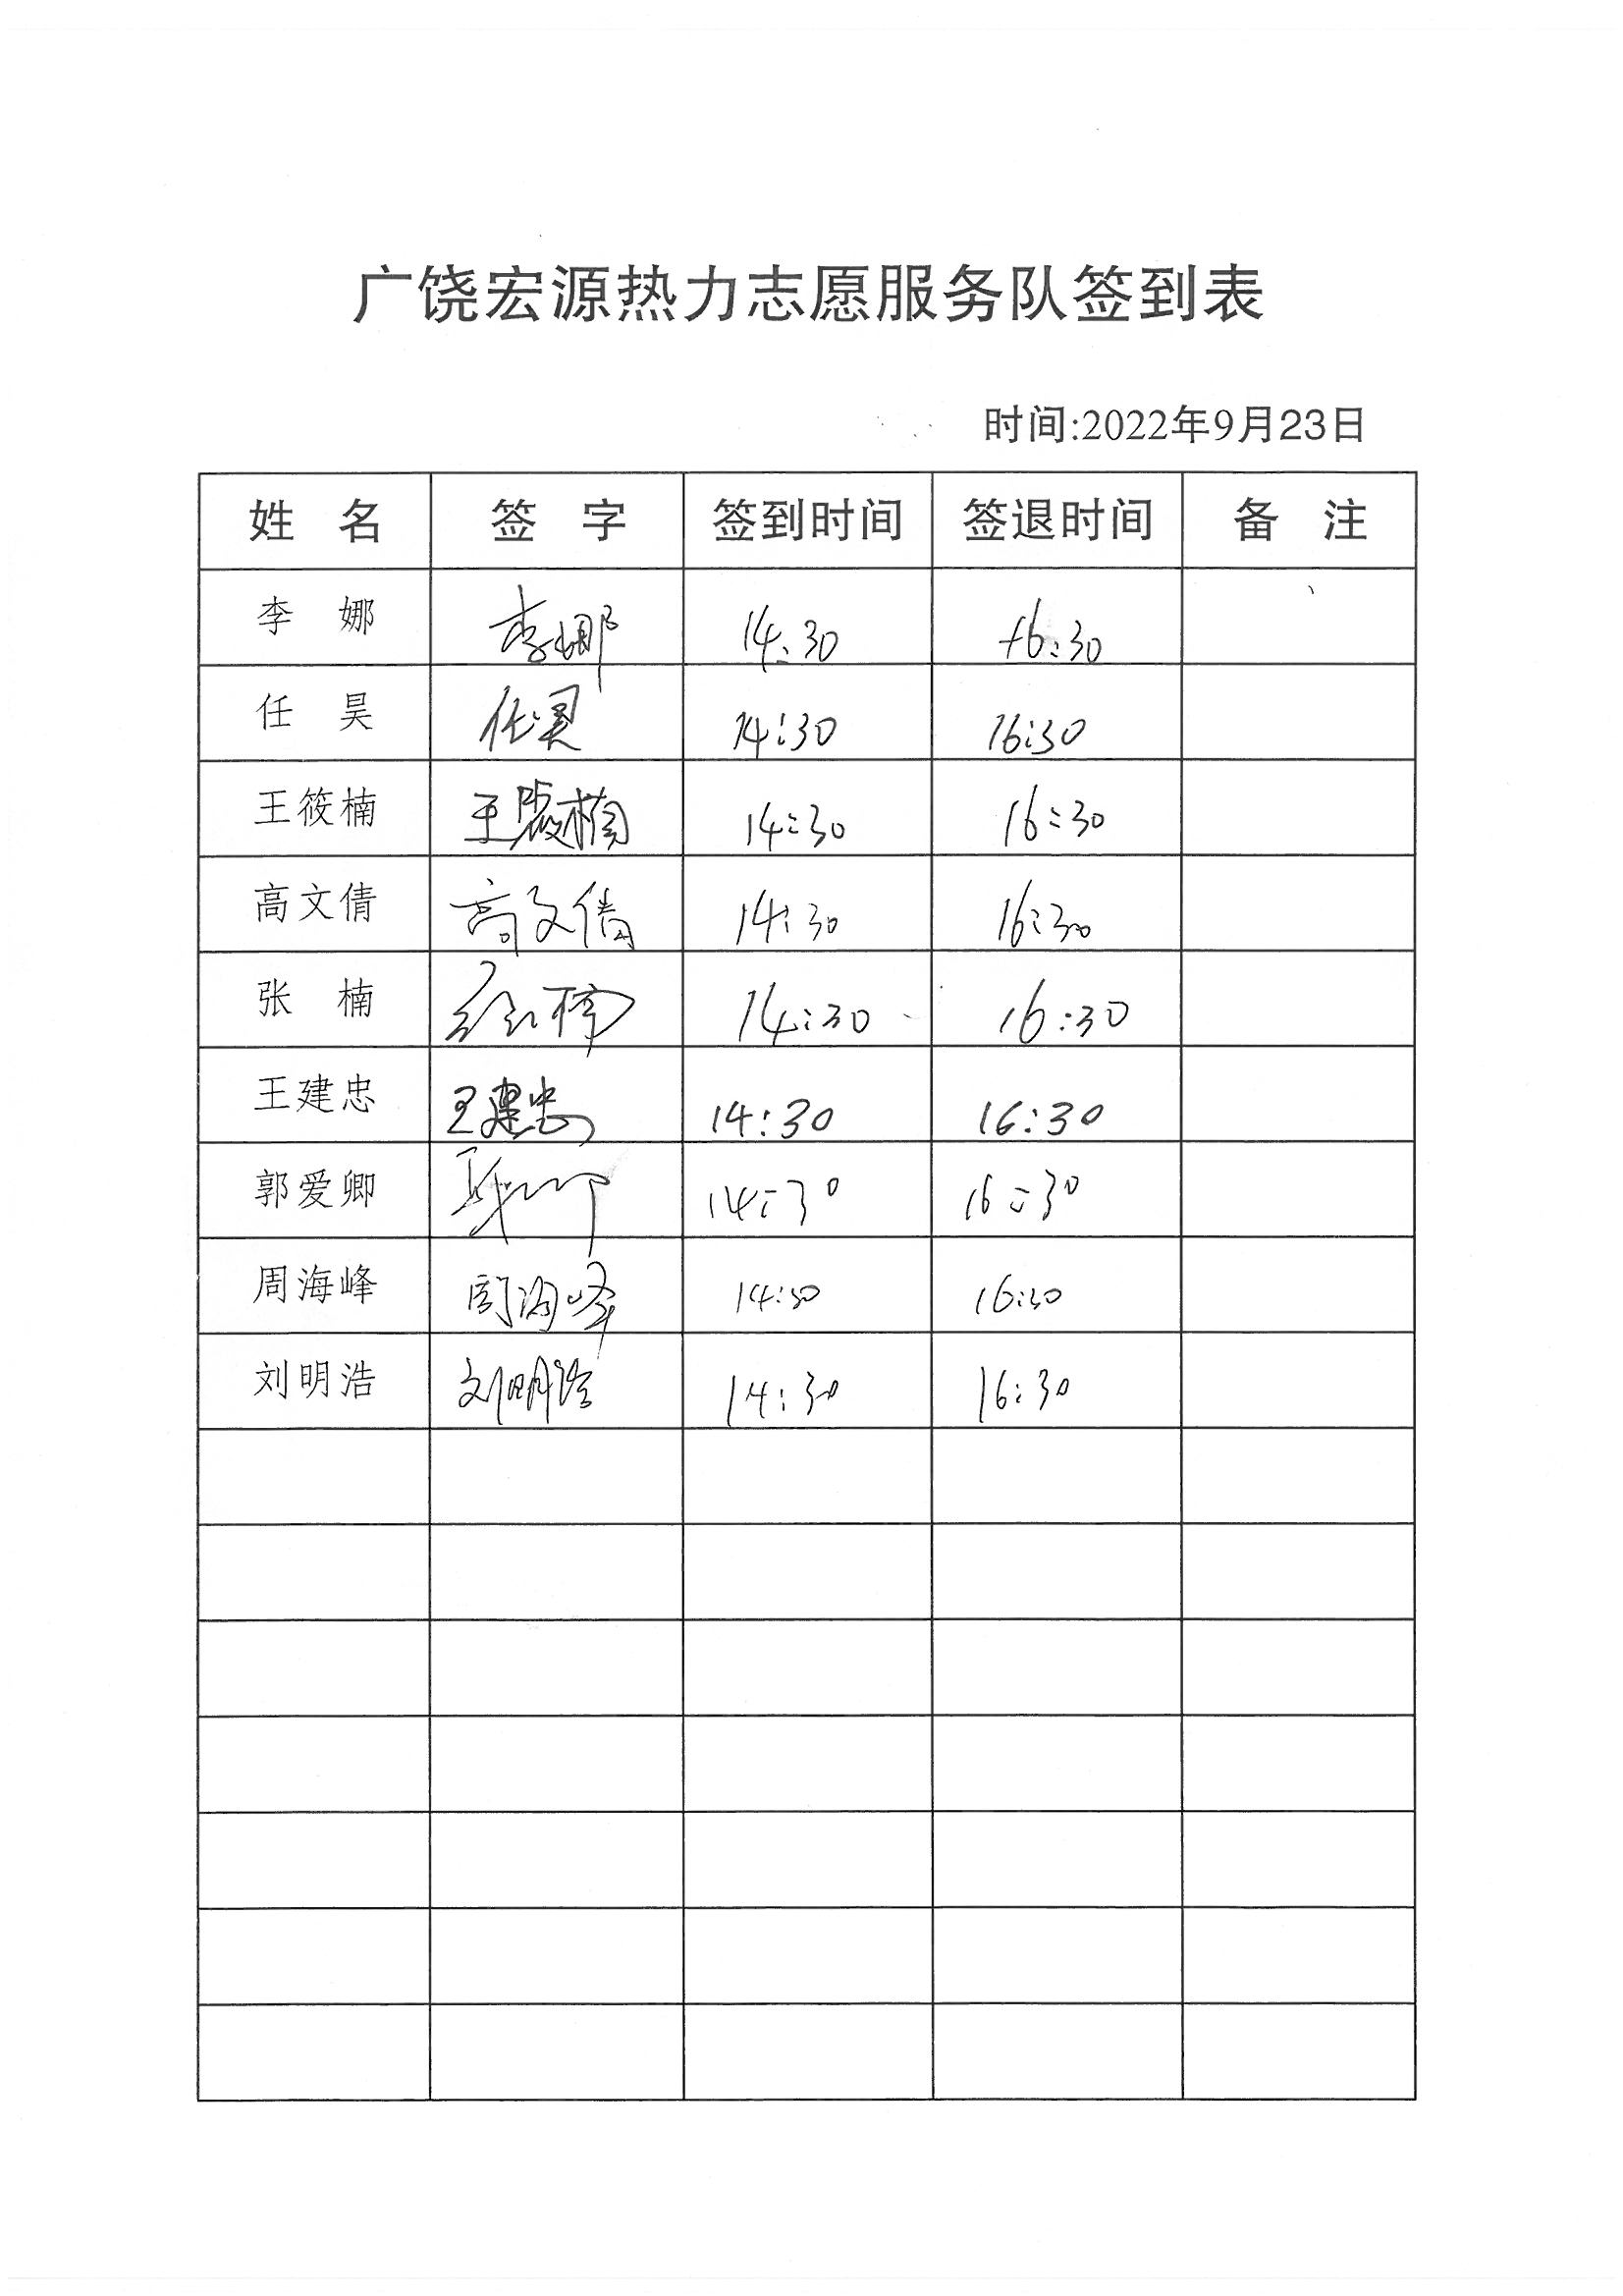 广饶宏源热力志愿服务队签到表
时间:2022年9月23日
姓 名 签 字 签到时间 签退时间 备 注
李 娜 李娜 14:30 16:30
任 昊 任昊 14:30 16:30
王筱楠 王筱楠 14:30 16:30
高文倩 高文倩 14:30 16:30
张 楠 张楠 14:30 16:30
王建忠 王建忠 14:30 16:30
郭爱卿 14:30 16:30
周海峰 周海峰 14:30 16:30
刘明浩 刘明浩 14:30 16:30